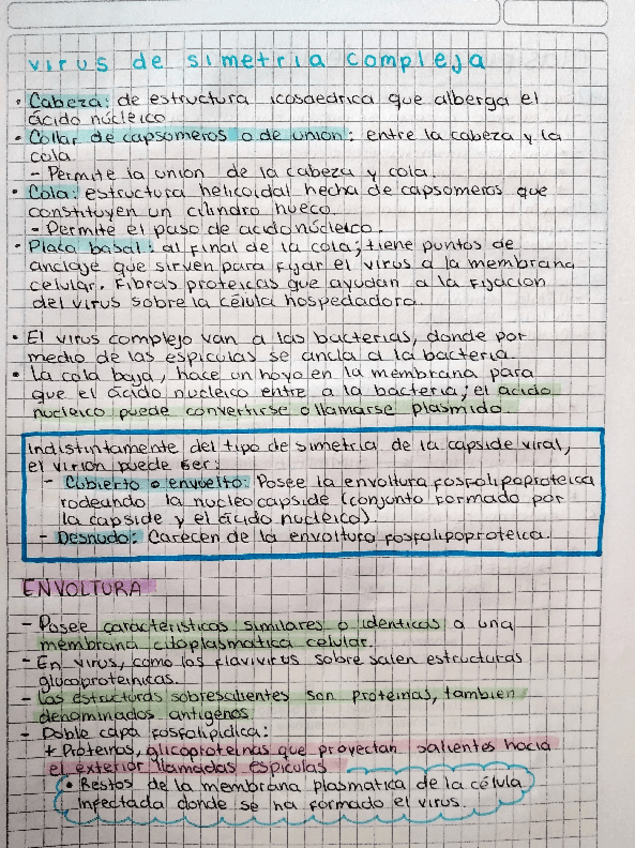 virus de simetria compleja
• Cabeza: de estructura icosaedrica que alberga el
ácido núcleico
• Collar de capsomeros o de union: entre la cabeza y la
cola.
- Permite la union de la cabeza y cola.
• Cola: estructura helicoidal hecha de capsomeros que
constituyen un cilindro hueco.
- Permite el paso de acido núcleico.
• Placa basal: al final de la cola; tiene puntos de
anclaje que sirven para fijar el virus a la membrana
celular. Fibras proteicas que ayudan a la fijacion
del virus sobre la célula hospedadora.
• El virus complejo van a las bacterias, donde por
medio de las espiculas se ancla a la bacteria.
• La cola baja, hace un hoyo en la membrana para
que el ácido nucleico entre a la bacteria; el acido
nucleico puede convertirse o llamarse plasmido.
Indistintamente del tipo de simetria de la capside viral,
el virion puede ser:
- Cubierto o envuelto: Posee la envoltura fosfolipoproteica
rodeando la nucleocapside (conjunto formado por
la capside y el ácido nucleico).
- Desnudo: Carecen de la envoltura fosfolipoproteica.
ENVOLTURA
- Posee caracteristicas similares o identicas a una
membrana citoplasmatica celular.
- En virus, como los flavivirus sobre salen estructuras
glucoproteinicas.
- Las estructuras sobresalientes son proteinas, tambien
denominados antigenos.
- Doble capa fosfolipidica:
+ Proteinas, glicoproteinas que proyectan salientes hacia
el exterior llamadas espiculas
• Restos de la membrana plasmatica de la célula
infectada donde se ha formado el virus.